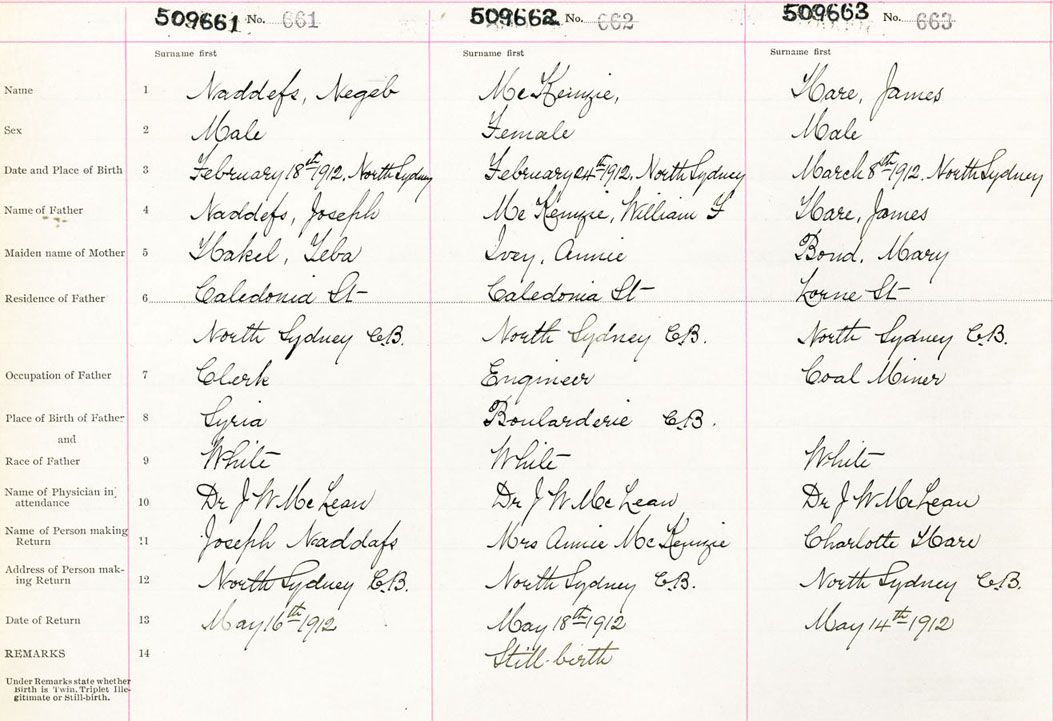 509661 No. 661 509662 No. 662 509663 No. 663
Surname first Surname first Surname first
Name 1 Naddefs, Negeb McKenzie, Hare, James
Sex 2 Male Female Male
Date and Place of Birth 3 February 18th 1912. North Sydney February 24th 1912. North Sydney March 8th 1912. North Sydney
Name of Father 4 Naddefs, Joseph McKenzie, William F Hare, James
Maiden name of Mother 5 Hakel, Zeba Ivey, Annie Bond, Mary
Residence of Father 6 Caledonia St Caledonia St Lorne St
North Sydney C.B. North Sydney C.B. North Sydney C.B.
Occupation of Father 7 Clerk Engineer Coal Miner
Place of Birth of Father 8 Syria Boularderie C.B.
and
Race of Father 9 White White White
Name of Physician in
attendance 10 Dr J W McLean Dr J W McLean Dr J W McLean
Name of Person making
Return 11 Joseph Naddafs Mrs Annie McKenzie Charlotte Hare
Address of Person mak-
ing Return 12 North Sydney C.B. North Sydney C.B. North Sydney C.B.
Date of Return 13 May 16th 1912 May 18th 1912 May 14th 1912
REMARKS 14 Still-birth
Under Remarks state whether
Birth is Twin, Triplet Ille-
gitimate or Still-birth.